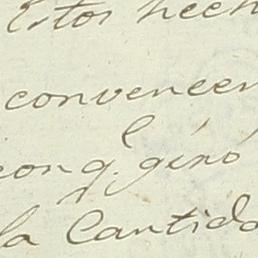 Estos hech
conveneen
con q.e giró
la Cantida